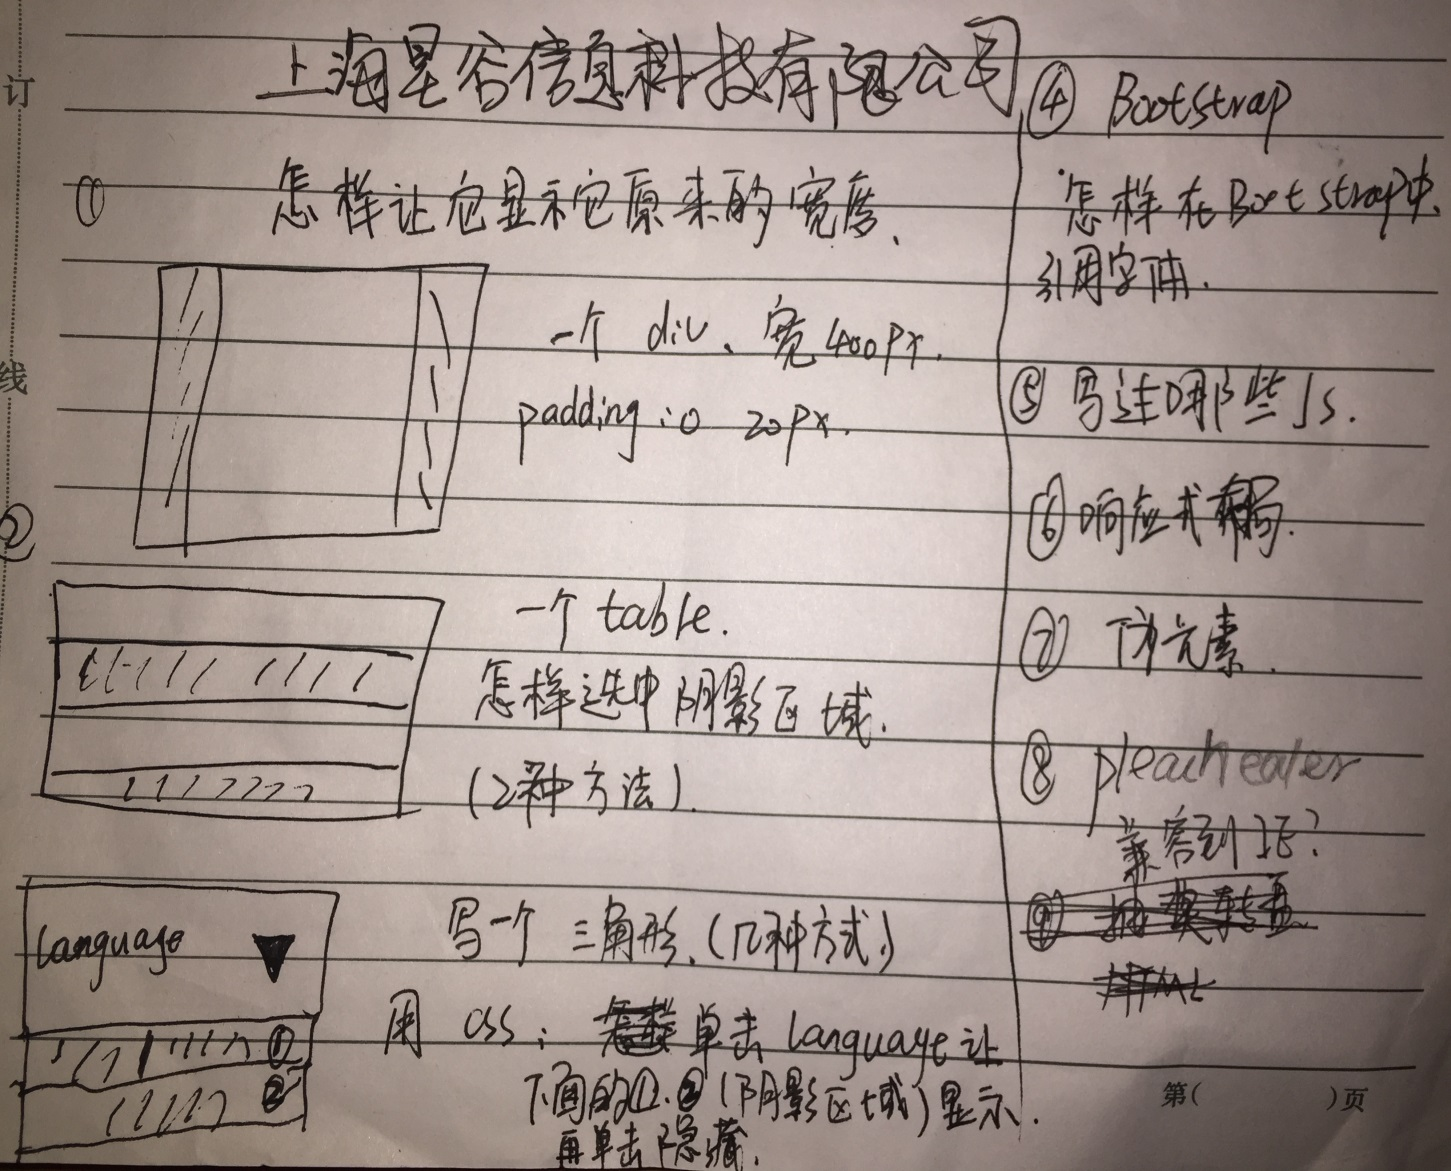 订
线
上海星谷信息科技有限公司
① 怎样让它显示它原来的宽度、
一个 div、宽 400px.
padding:0 20px.
②
一个 table.
怎样选中阴影区域.
(2种方法).
language ▼
①
②
写一个 三角形.(几种方式)
用 css: 单击 language 让
下面的①.②(阴影区域)显示.
再单击隐藏.
④ Bootstrap
怎样在Bootstrap中.
引用字体.
⑤ 写过哪些Js.
⑥ 响应式布局.
⑦ 伪元素.
⑧
兼容到IE?
⑨ 抽奖转盘
HTML
第( )页